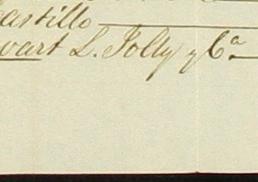 astillo
wart L. Jolly y Cª